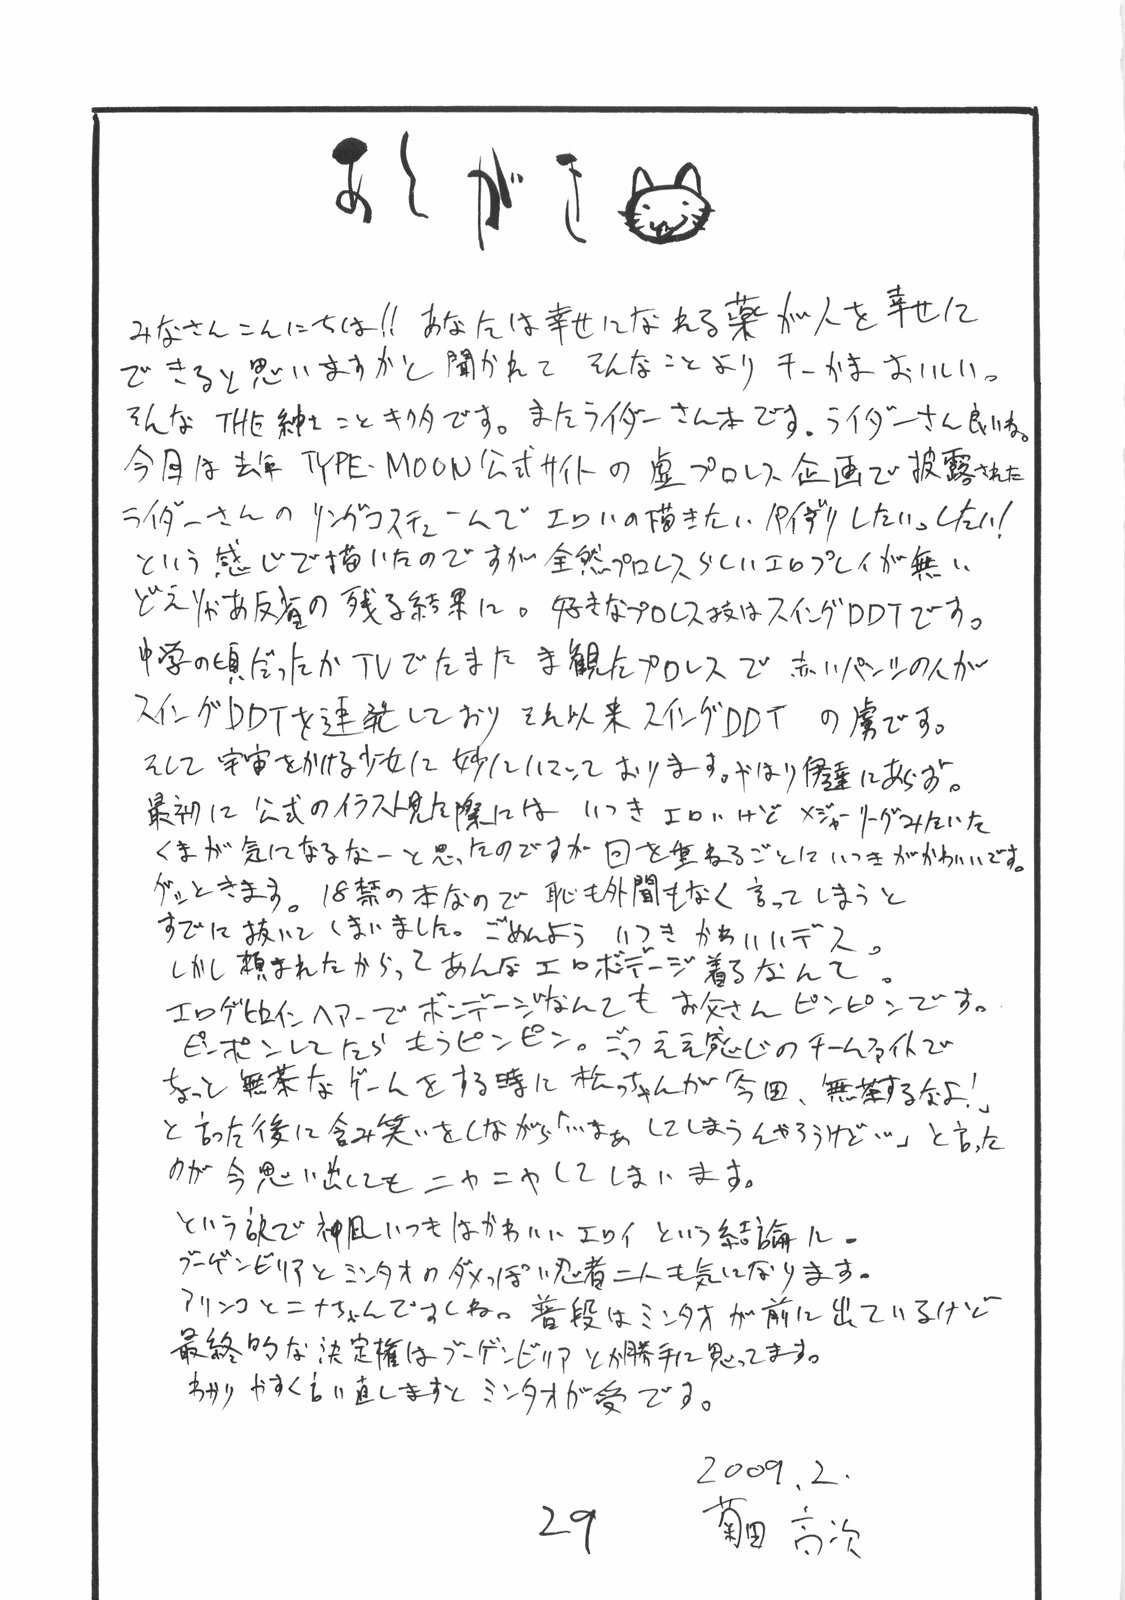 あとがき
みなさんこんにちは!! あなたは幸せになれる薬が人を幸せに
できると思いますかと聞かれて そんなことより チーかまおいしい。
そんな THE紳士ことキクタです。またライダーさん本です。ライダーさん良いね。
今回は去年 TYPE-MOON公式サイトの虚プロレス企画で披露された
ライダーさんのリングコスチュームんで エロいの描きたい パイズリしたいっしたい!
という感じで描いたのですが全然プロレスらしいエロプレイが無い
どえりゃあ反省の残る結果に。好きなプロレス技はスイングDDTです。
中学の頃だったか TVでたまたま観たプロレスで 赤いパンツの人が
スイングDDTを連発しており それ以来 スイングDDT の虜です。
そして 宇宙をかける少女に 妙にハマっております。やはり伊達にあらず。
最初に 公式のイラスト見た際には いつき エロいけど メジャーリーグみたいた
くまが気になるなーと思ったのですが 回を重ねるごとにいつきがかわいいです。
グッときます。18禁の本なので 恥も外聞もなく 言ってしまうと
すでに抜いてしまいました。ごめんよう いつき かわいいデス。
しかし頼まれたからってあんなエロボンデージ着るなんて。
エロゲヒロインヘアーで ボンデージなんても お父さん ピンピンです。
ピンポンしてたら もうピンピン。ごっつええ感じの チームファイトで
ちょっと 無茶なゲームをする時に 松っちゃんが「今田、無茶するなよ!」
と言った後に含み笑いをしながら「…まぁ してしまうんやろうけど…」と言った
のが今思い出しても ニヤニヤしてしまいます。
という訳で神凪いつきはかわいいエロイ という結論に。
ブーゲンビリアとミンタオのダメっぽい忍者二人も気になります。
アリンコとニナちゃんですしね。普段はミンタオが前に出ているけど
最終的な決定権はブーゲンビリア とか勝手に思ってます。
わかりやすく言い直しますと ミンタオが受です。
2009.2.
菊田 高次
29